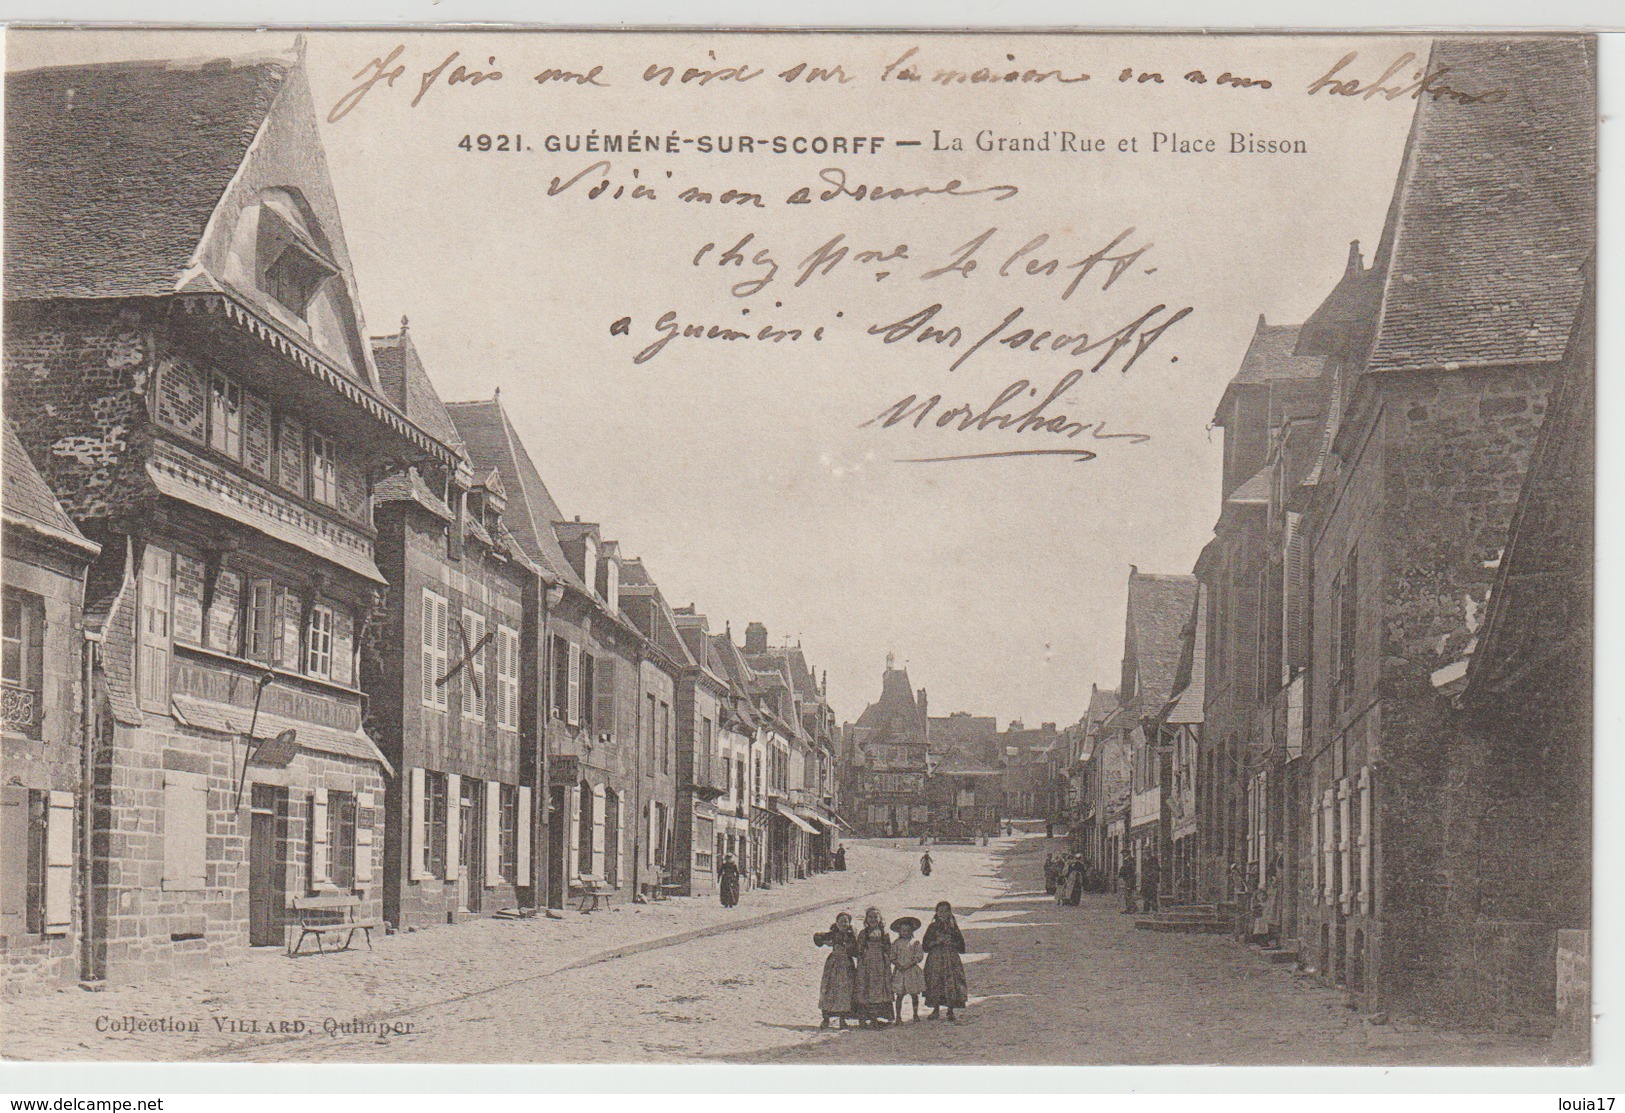 Je fais une croix sur la maison ou nous habitons
4921. GUÉMÉNÉ-SUR-SCORFF — La Grand'Rue et Place Bisson
Voici mon adresse
chez Mme Le Corff.
a Guéméné Sur/scorff.
Morbihan
HOTEL
Collection VILLARD, Quimper
www.delcampe.net
louia17